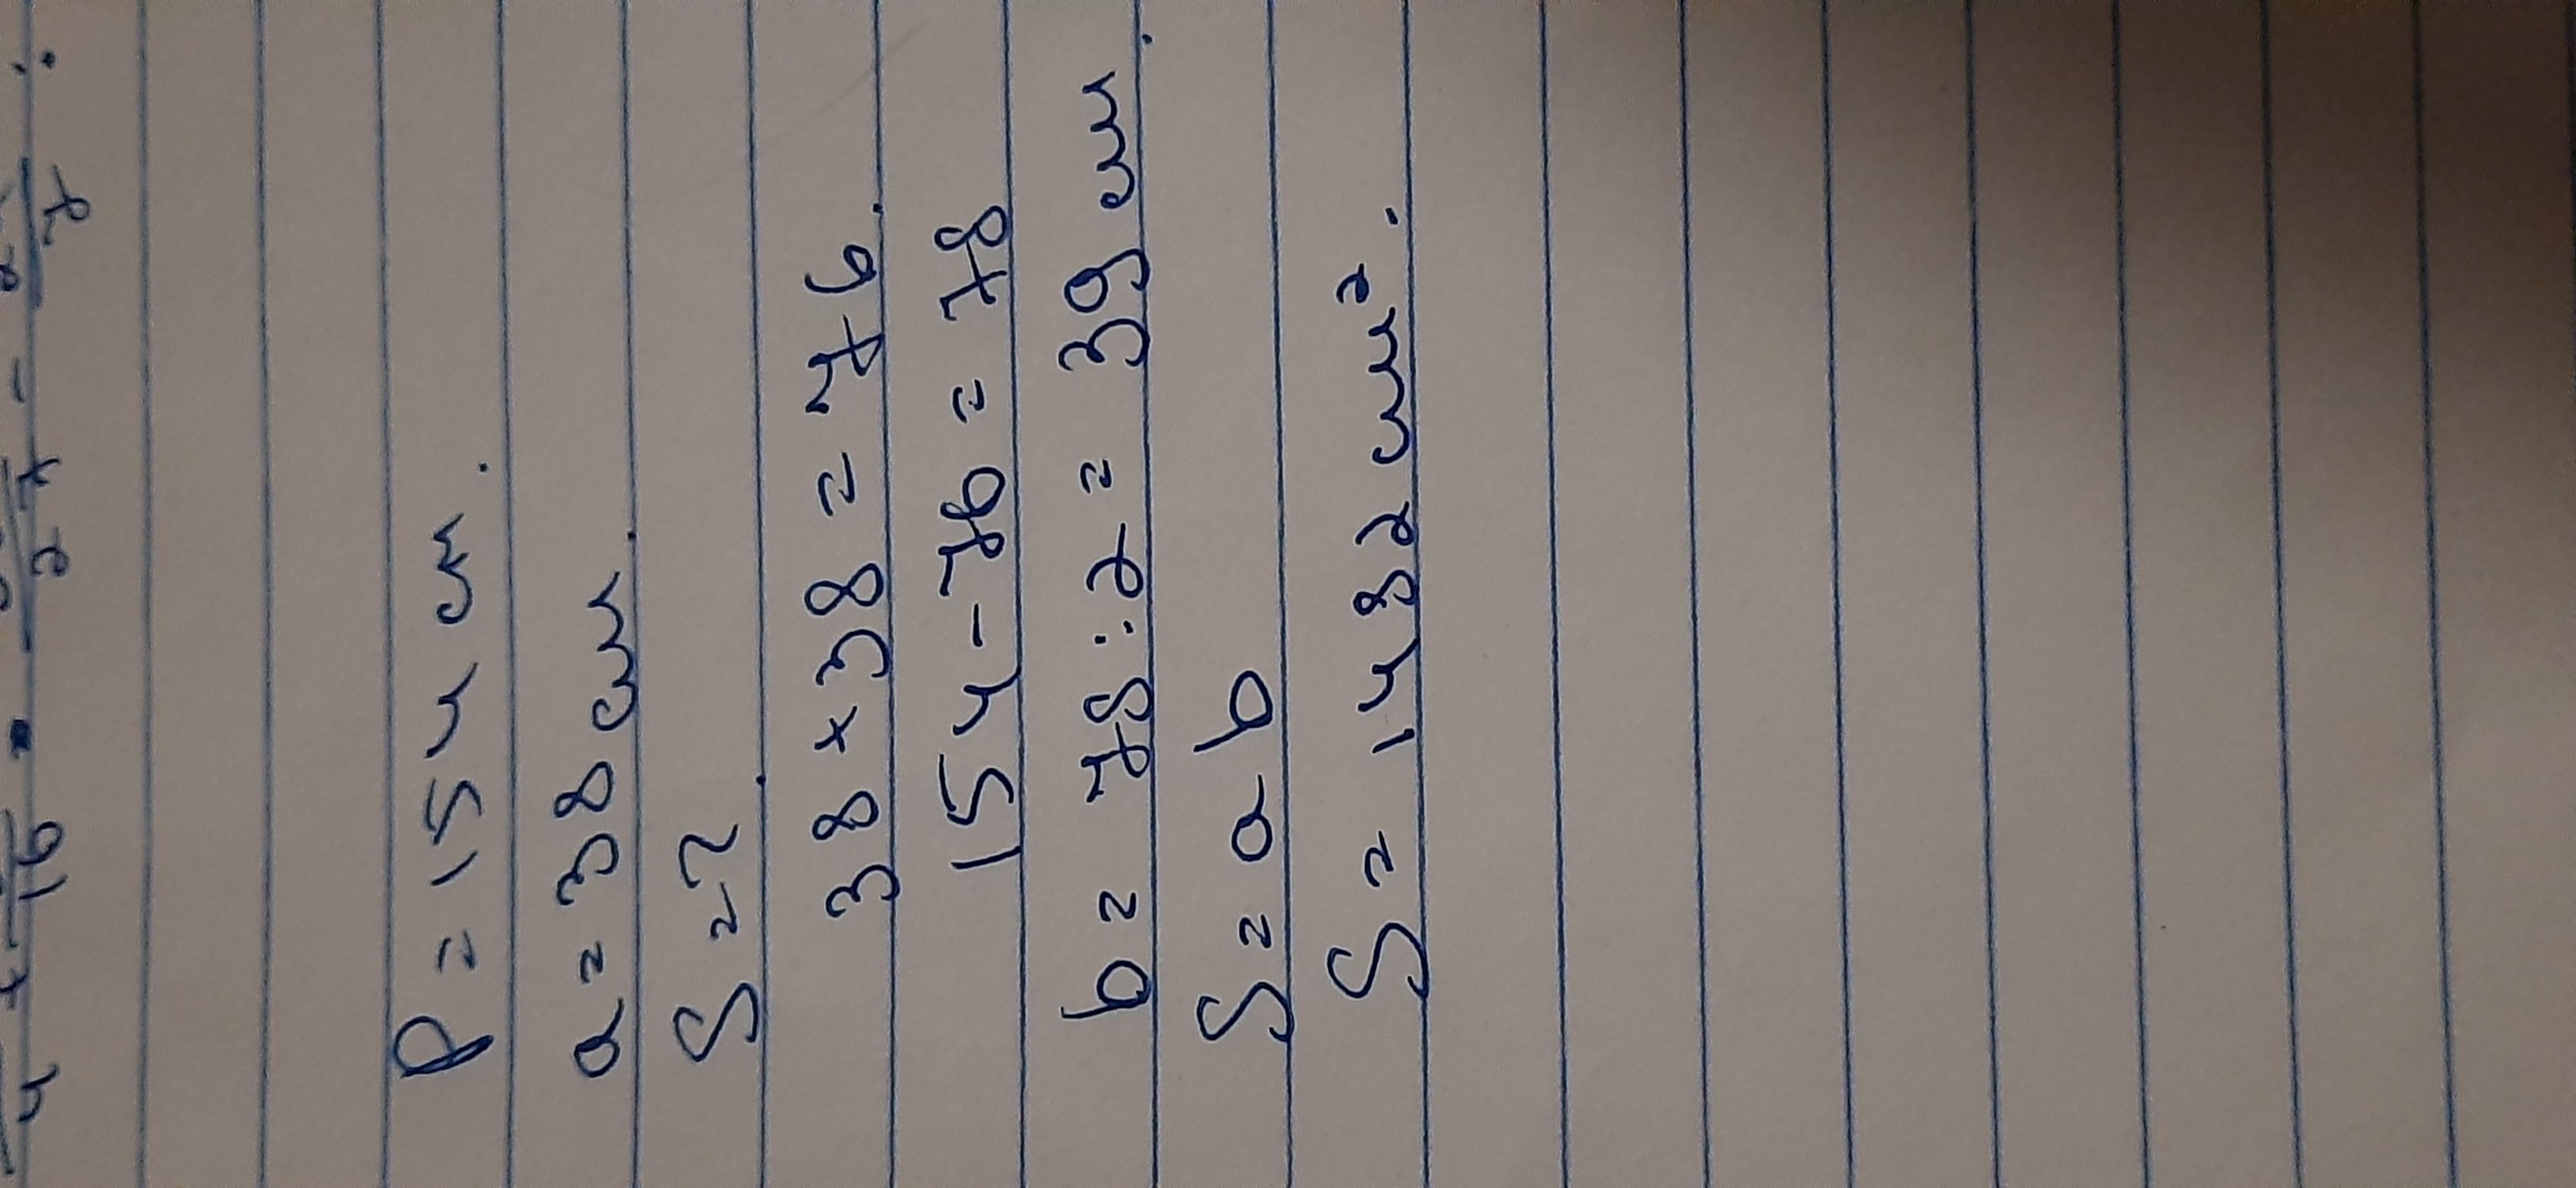 P = 154 cm.
a = 38 cm.
S = ?.
38 + 38 = 76.
154 - 76 = 78
b = 78 : 2 = 39 cm.
S = a b
S = 1482 cm².